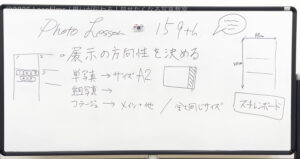 Photo Lesson 159th
・展示の方向性を決める
単写真 → サイズ A2
組写真 →
コラージュ → メイン + 他 / 全て同じサイズ
スチレンボード